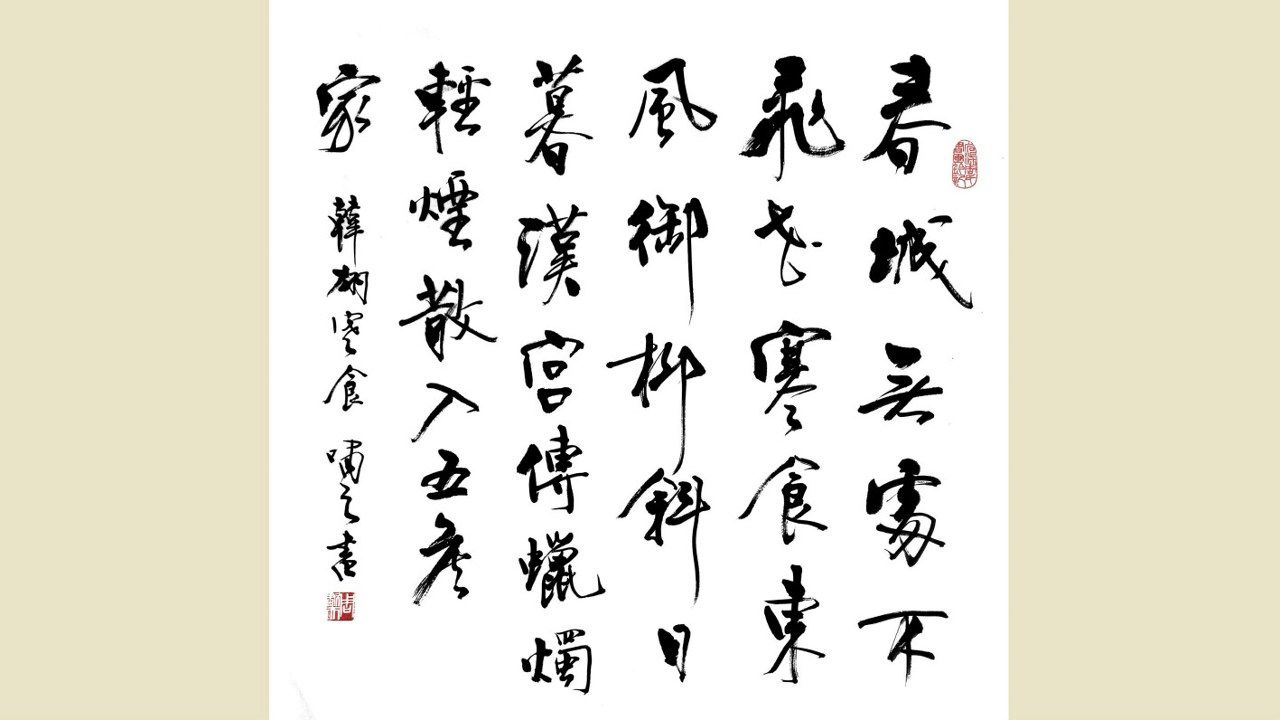 春城無處不
飛花寒食東
風御柳斜日
暮漢宮傳蠟燭
輕煙散入五侯
家
韓翃寒食 嘯云書